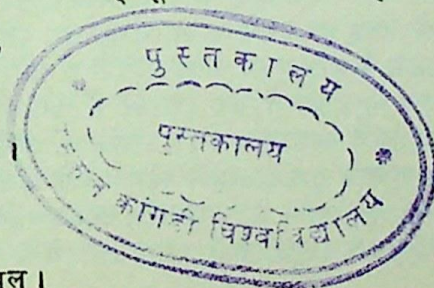 पुस्तकालय
पुस्तकालय
कांगडी विश्वविद्यालय
।
ल ।